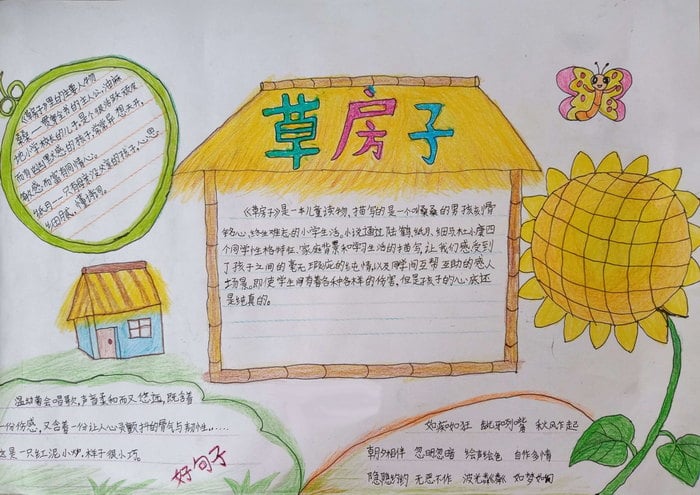 草房子
《草房子》里的主要人物
桑桑——贯穿全书的主人公,油麻
地小学校长的儿子。是个很活跃
纸月——只有母亲没父亲的孩子
《草房子》是一本儿童读物,描写的是一个叫桑桑的男孩刻骨
铭心,终生难忘的小学生活,小说通过陆鹤、纸月、细马、杜小康四
个同学性格特征、家庭背景和学习生活的描写,让我们感受到
了孩子之间的毫无瑕疵的纯情,以及同学间互帮互助的感人
场景。即使生活中有着各种各样的伤害,但是孩子的心永远
是纯真的。
温幼菊会唱歌,声音柔和而又悠远,既含着
一份伤感,又含着一份让人心灵颤抖的骨气与韧性……
这是一只红泥小炉,样子很小巧。
好句子
秋风乍起
朝夕相伴 忽明忽暗 绘声绘色 自作多情
隐隐约约 无恶不作 波光粼粼 如梦如幻